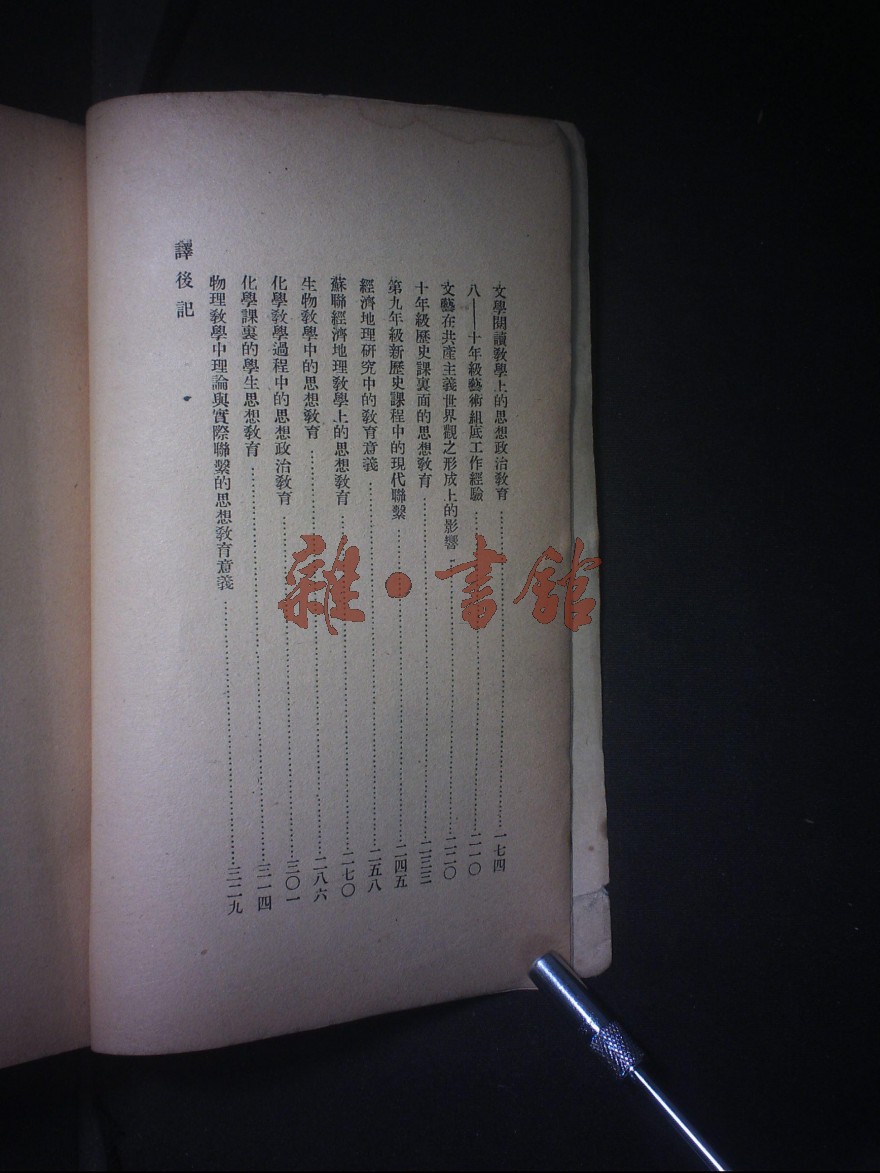 文學閱讀敎學上的思想政治敎育……一七四
八——十年級藝術組底工作經驗……二一〇
文藝在共產主義世界觀之形成上的影響……二二〇
十年級歷史課裏面的思想敎育……二三三
第九年級新歷史課程中的現代聯繫……二四五
經濟地理研究中的敎育意義……二五八
蘇聯經濟地理敎學上的思想敎育……二七〇
生物敎學中的思想敎育……二八六
化學敎學過程中的思想政治敎育……三〇一
化學課裏的學生思想敎育……三一四
物理敎學中理論與實際聯繫的思想敎育意義……三二九
譯後記
雜·書館